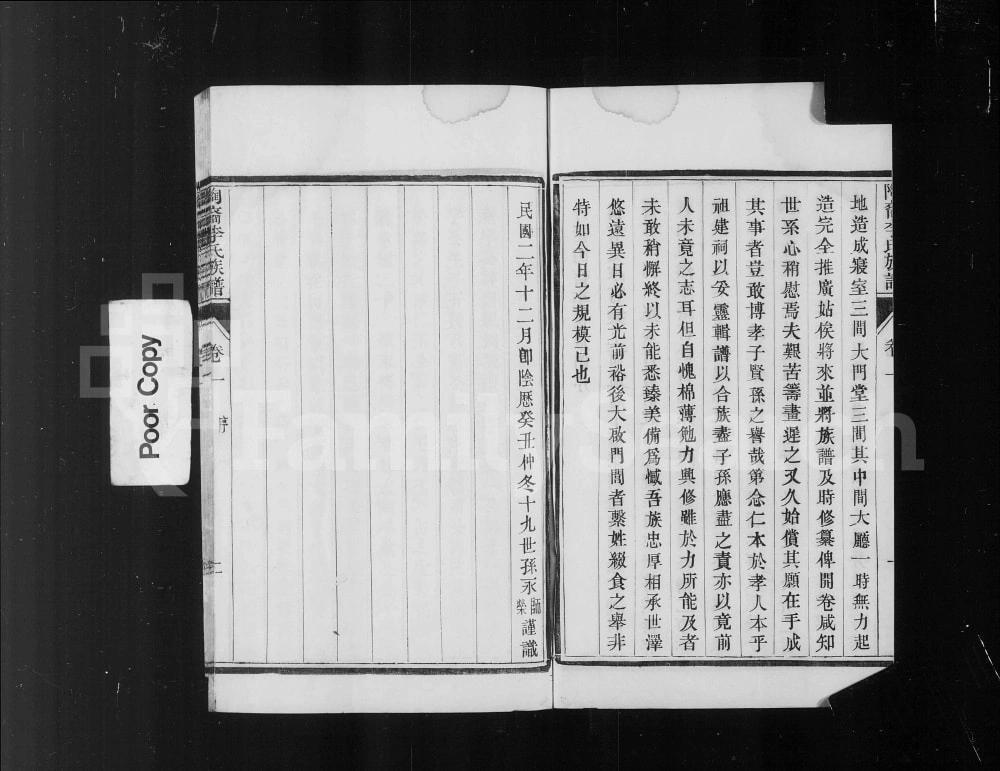 陶裔李氏族譜
卷一
地造成寢室三間大門堂三間其中間大廳一時無力起
造完全推廣姑俟將來並將族譜及時修纂俾開卷咸知
世系心稍慰焉夫艱苦籌畫遲之又久始償其願在手成
其事者豈敢博孝子賢孫之譽哉第念仁本於孝人本乎
祖建祠以妥靈輯譜以合族盡子孫應盡之責亦以竟前
人未竟之志耳但自愧棉薄勉力興修雖於力所能及者
未敢稍懈終以未能悉臻美備為憾吾族忠厚相承世澤
悠遠異日必有光前裕後大啟門閭者繫姓綴食之舉非
特如今日之規模已也
民國二年十二月卽陰歷癸丑仲冬十九世孫永師榮謹識
陶裔李氏族譜
卷一
序
二
Poor Copy
FamilySearch